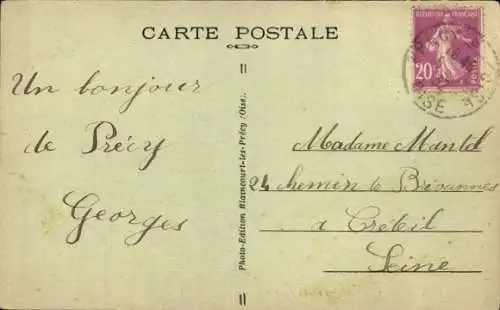 CARTE POSTALE
REPUBLIQUE FRANÇAISE
20c
POSTES
OISE
Un bonjour
de Précy
Georges
Photo-Edition Blaincourt-les-Précy (Oise).
Madame Mantel
24 chemin de Brévannes
a Créteil
Seine